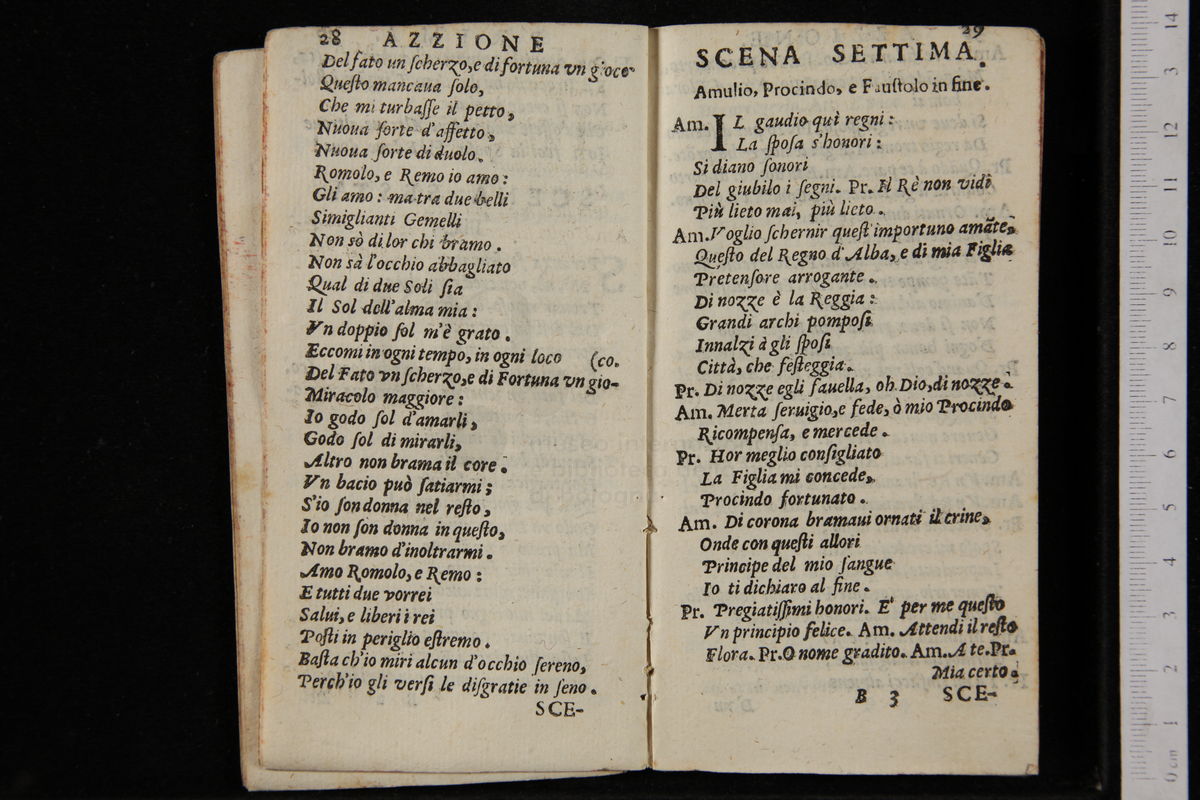 28 AZZIONE
Del fato un ſcherzo,e di fortuna vn gioco
Queſto mancaua ſolo,
Che mi turbaſſe il petto,
Nuoua ſorte d'affetto,
Nuoua ſorte di duolo.
Romolo, e Remo io amo:
Gli amo: ma tra due belli
Simiglianti Gemelli
Non sò di lor chi bramo.
Non sà l'occhio abbagliato
Qual di due Soli ſia
Il Sol dell'alma mia:
Vn doppio ſol m'è grato.
Eccomi in ogni tempo, in ogni loco (co.
Del Fato vn ſcherzo,e di Fortuna vn gio-
Miracolo maggiore:
Io godo ſol d'amarli,
Godo ſol di mirarli,
Altro non brama il core.
Vn bacio può ſatiarmi;
S'io ſon donna nel reſto,
Io non ſon donna in queſto,
Non bramo d'inoltrarmi.
Amo Romolo, e Remo:
E tutti due vorrei
Salui, e liberi i rei
Poſti in periglio eſtremo.
Baſta ch'io miri alcun d'occhio ſereno,
Perch'io gli verſi le diſgratie in ſeno.
SCE-
29
SCENA SETTIMA.
Amulio, Procindo, e Fauſtolo in fine.
Am. IL gaudio quì regni:
La ſpoſa s'honori:
Si diano ſonori
Del giubilo i ſegni. Pr. Il Rè non vidi
Più lieto mai, più lieto.
Am. Voglio ſchernir queſt'importuno amāte,
Queſto del Regno d'Alba, e di mia Figlia
Pretenſore arrogante.
Di nozze è la Reggia:
Grandi archi pompoſi
Innalzi à gli ſpoſi
Città, che feſteggia.
Pr. Di nozze egli fauella, oh Dio, di nozze.
Am. Merta ſeruigio,e fede, ò mio Procindo
Ricompenſa, e mercede.
Pr. Hor meglio conſigliato
La Figlia mi concede,
Procindo fortunato.
Am. Di corona bramaui ornati il crine,
Onde con queſti allori
Principe del mio ſangue
Io ti dichiaro al fine.
Pr. Pregiatiſſimi honori. E' per me queſto
Vn principio felice. Am. Attendi il reſto
Flora. Pr. O nome gradito. Am. A te. Pr.
Mia certo.
B 3 SCE-